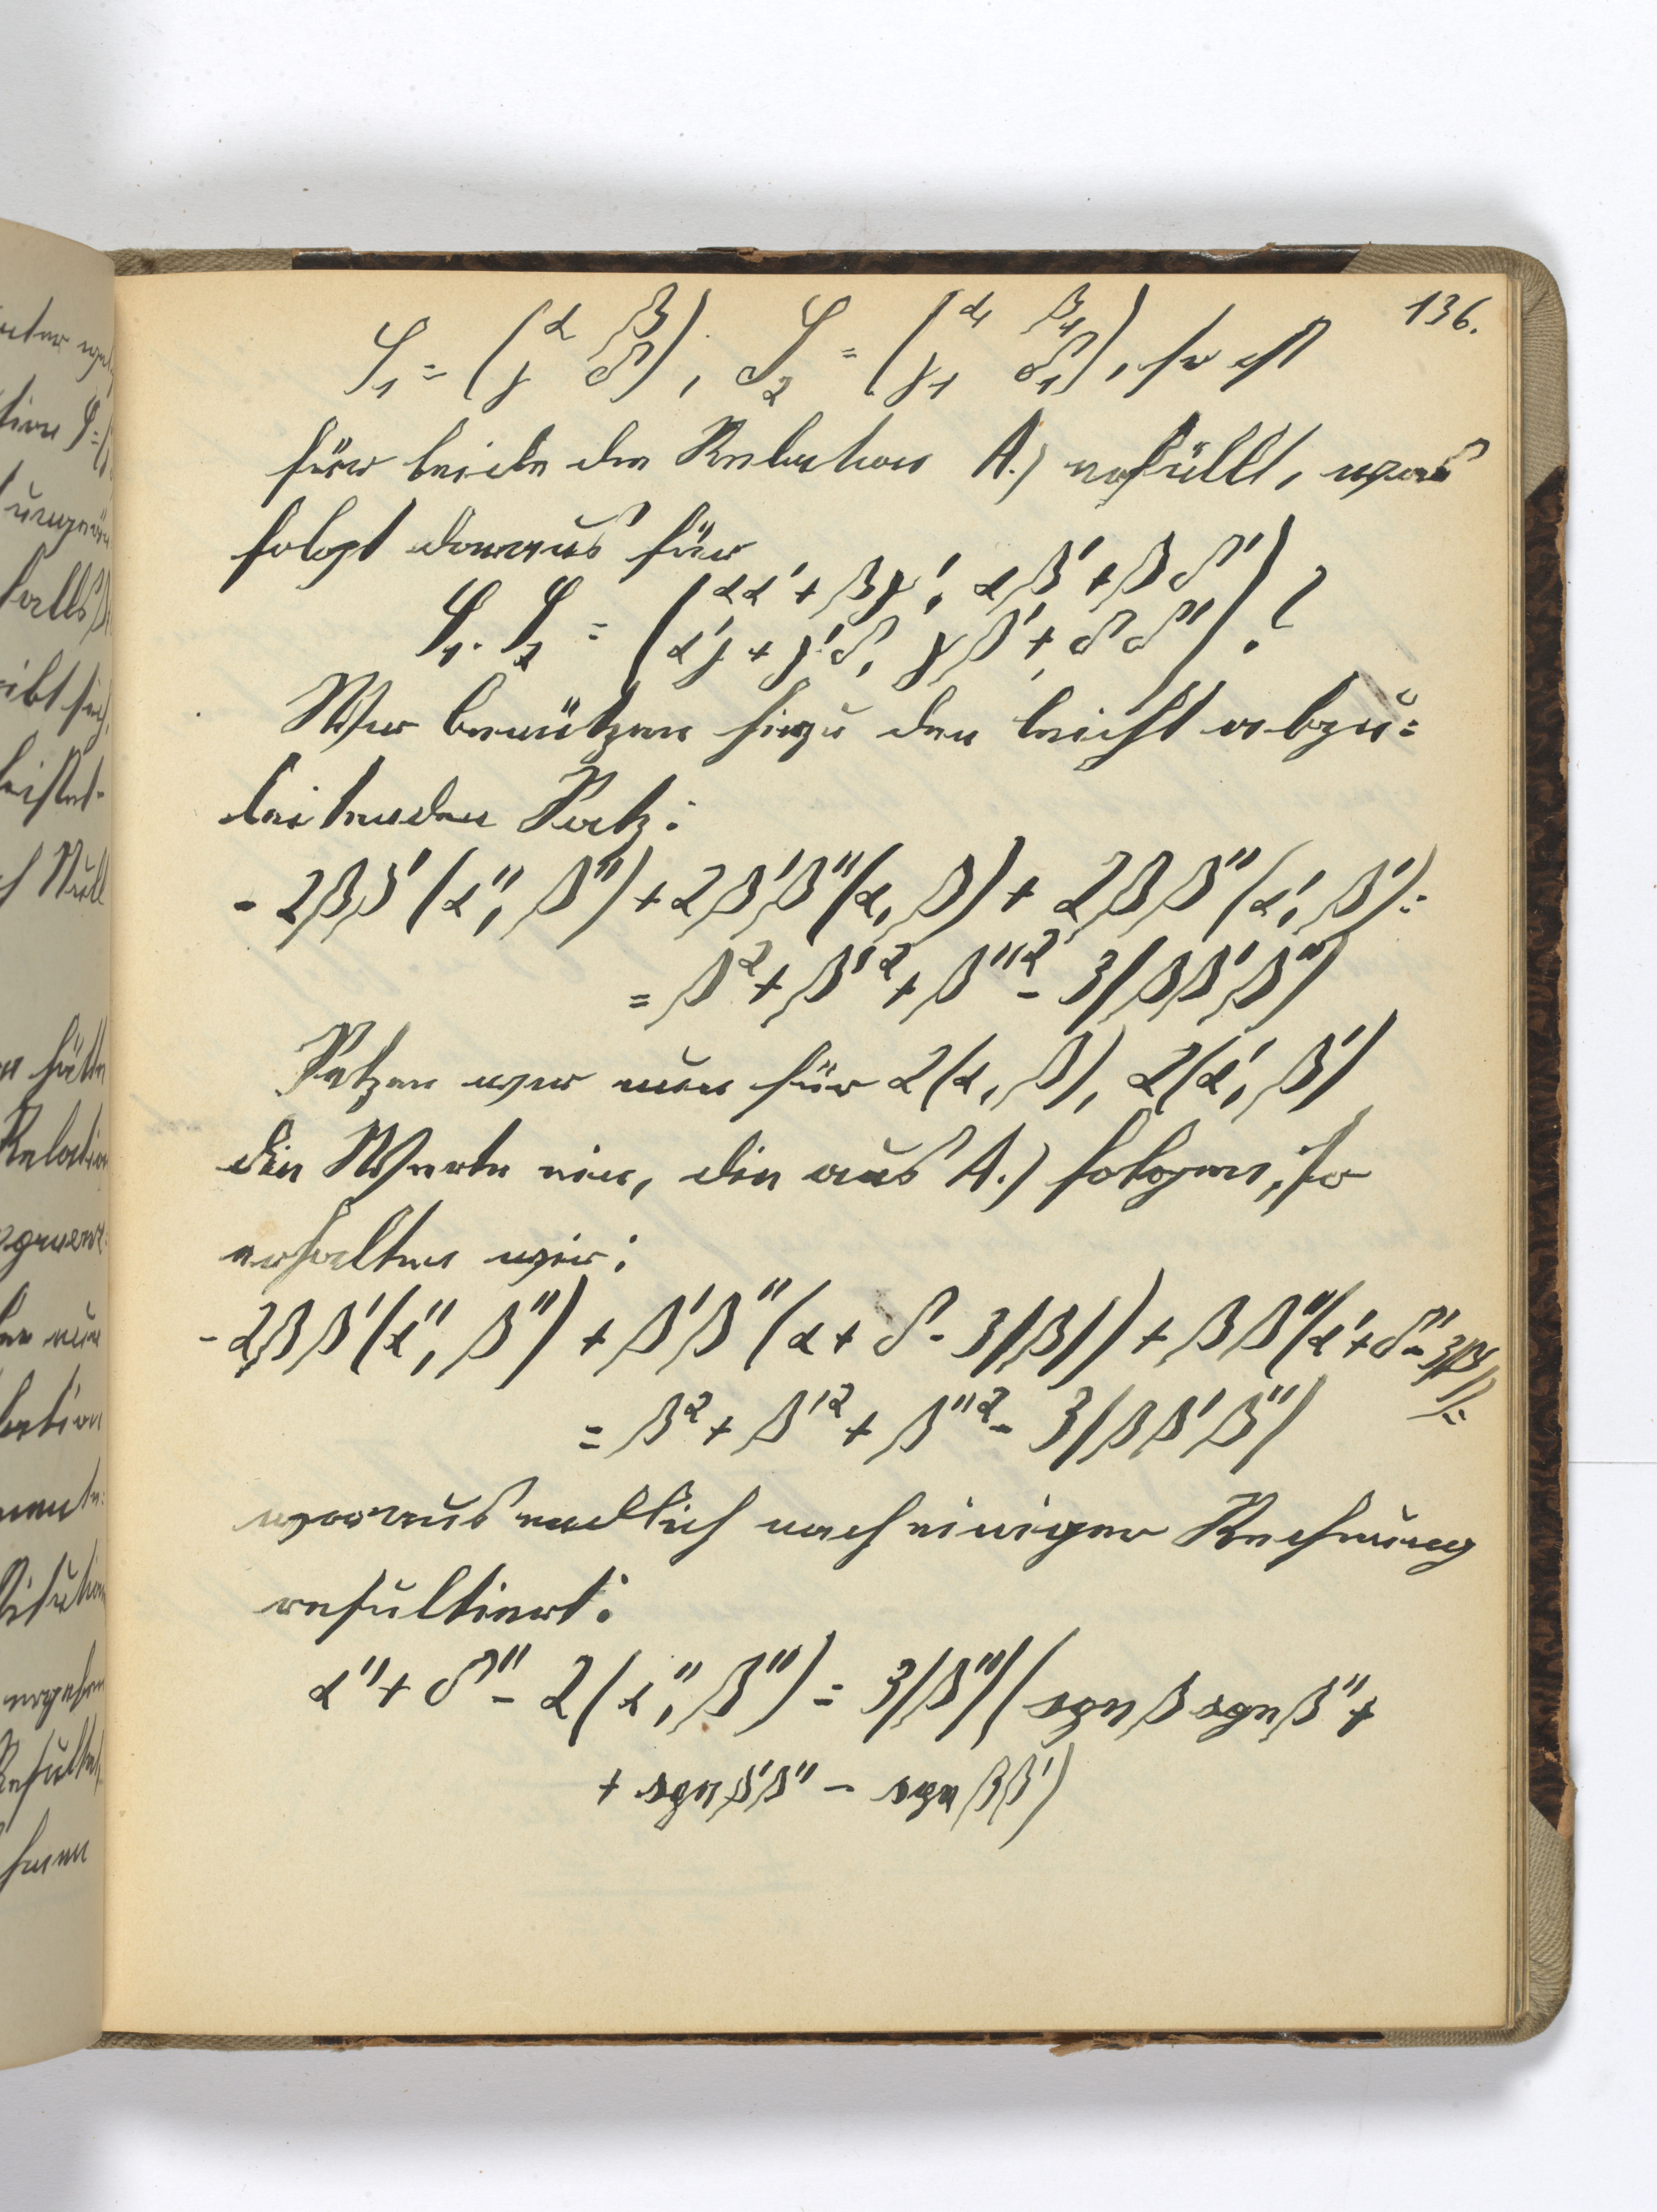 136.
S₁ = (α β / γ δ), S₂ = (α₁ β₁ / γ₁ δ₁), so ist
für beide die Relation A.) erfüllt, was
folgt daraus für
S₁. S₂ = (αα' + βγ', αβ' + βδ' / α'γ + γ'δ, γβ' + δδ').?
Wir benützen hiezu den leicht abzu=
leitenden Satz:
- 2ββ' (α'', β'') + 2β'β'' (α, β) + 2ββ'' (α', β') =
= β² + β'² + β''² - 3|ββ'β''|
Setzen wir nun für 2(α, β), 2(α', β')
die Werte ein, die aus A.) folgen, so
erhalten wir:
- 2ββ'(α'', β'') + β'β'' (α + δ - 3|β|) + ββ''(α' + δ' - 3|β'|) =
= β² + β'² + β''² - 3|ββ'β''|
woraus endlich nach einiger Rechnung
resultiert:
α'' + δ'' - 2(α'', β'') = 3|β''|(sgn β sgn β'' +
+ sgn β'β'' - sgn ββ')